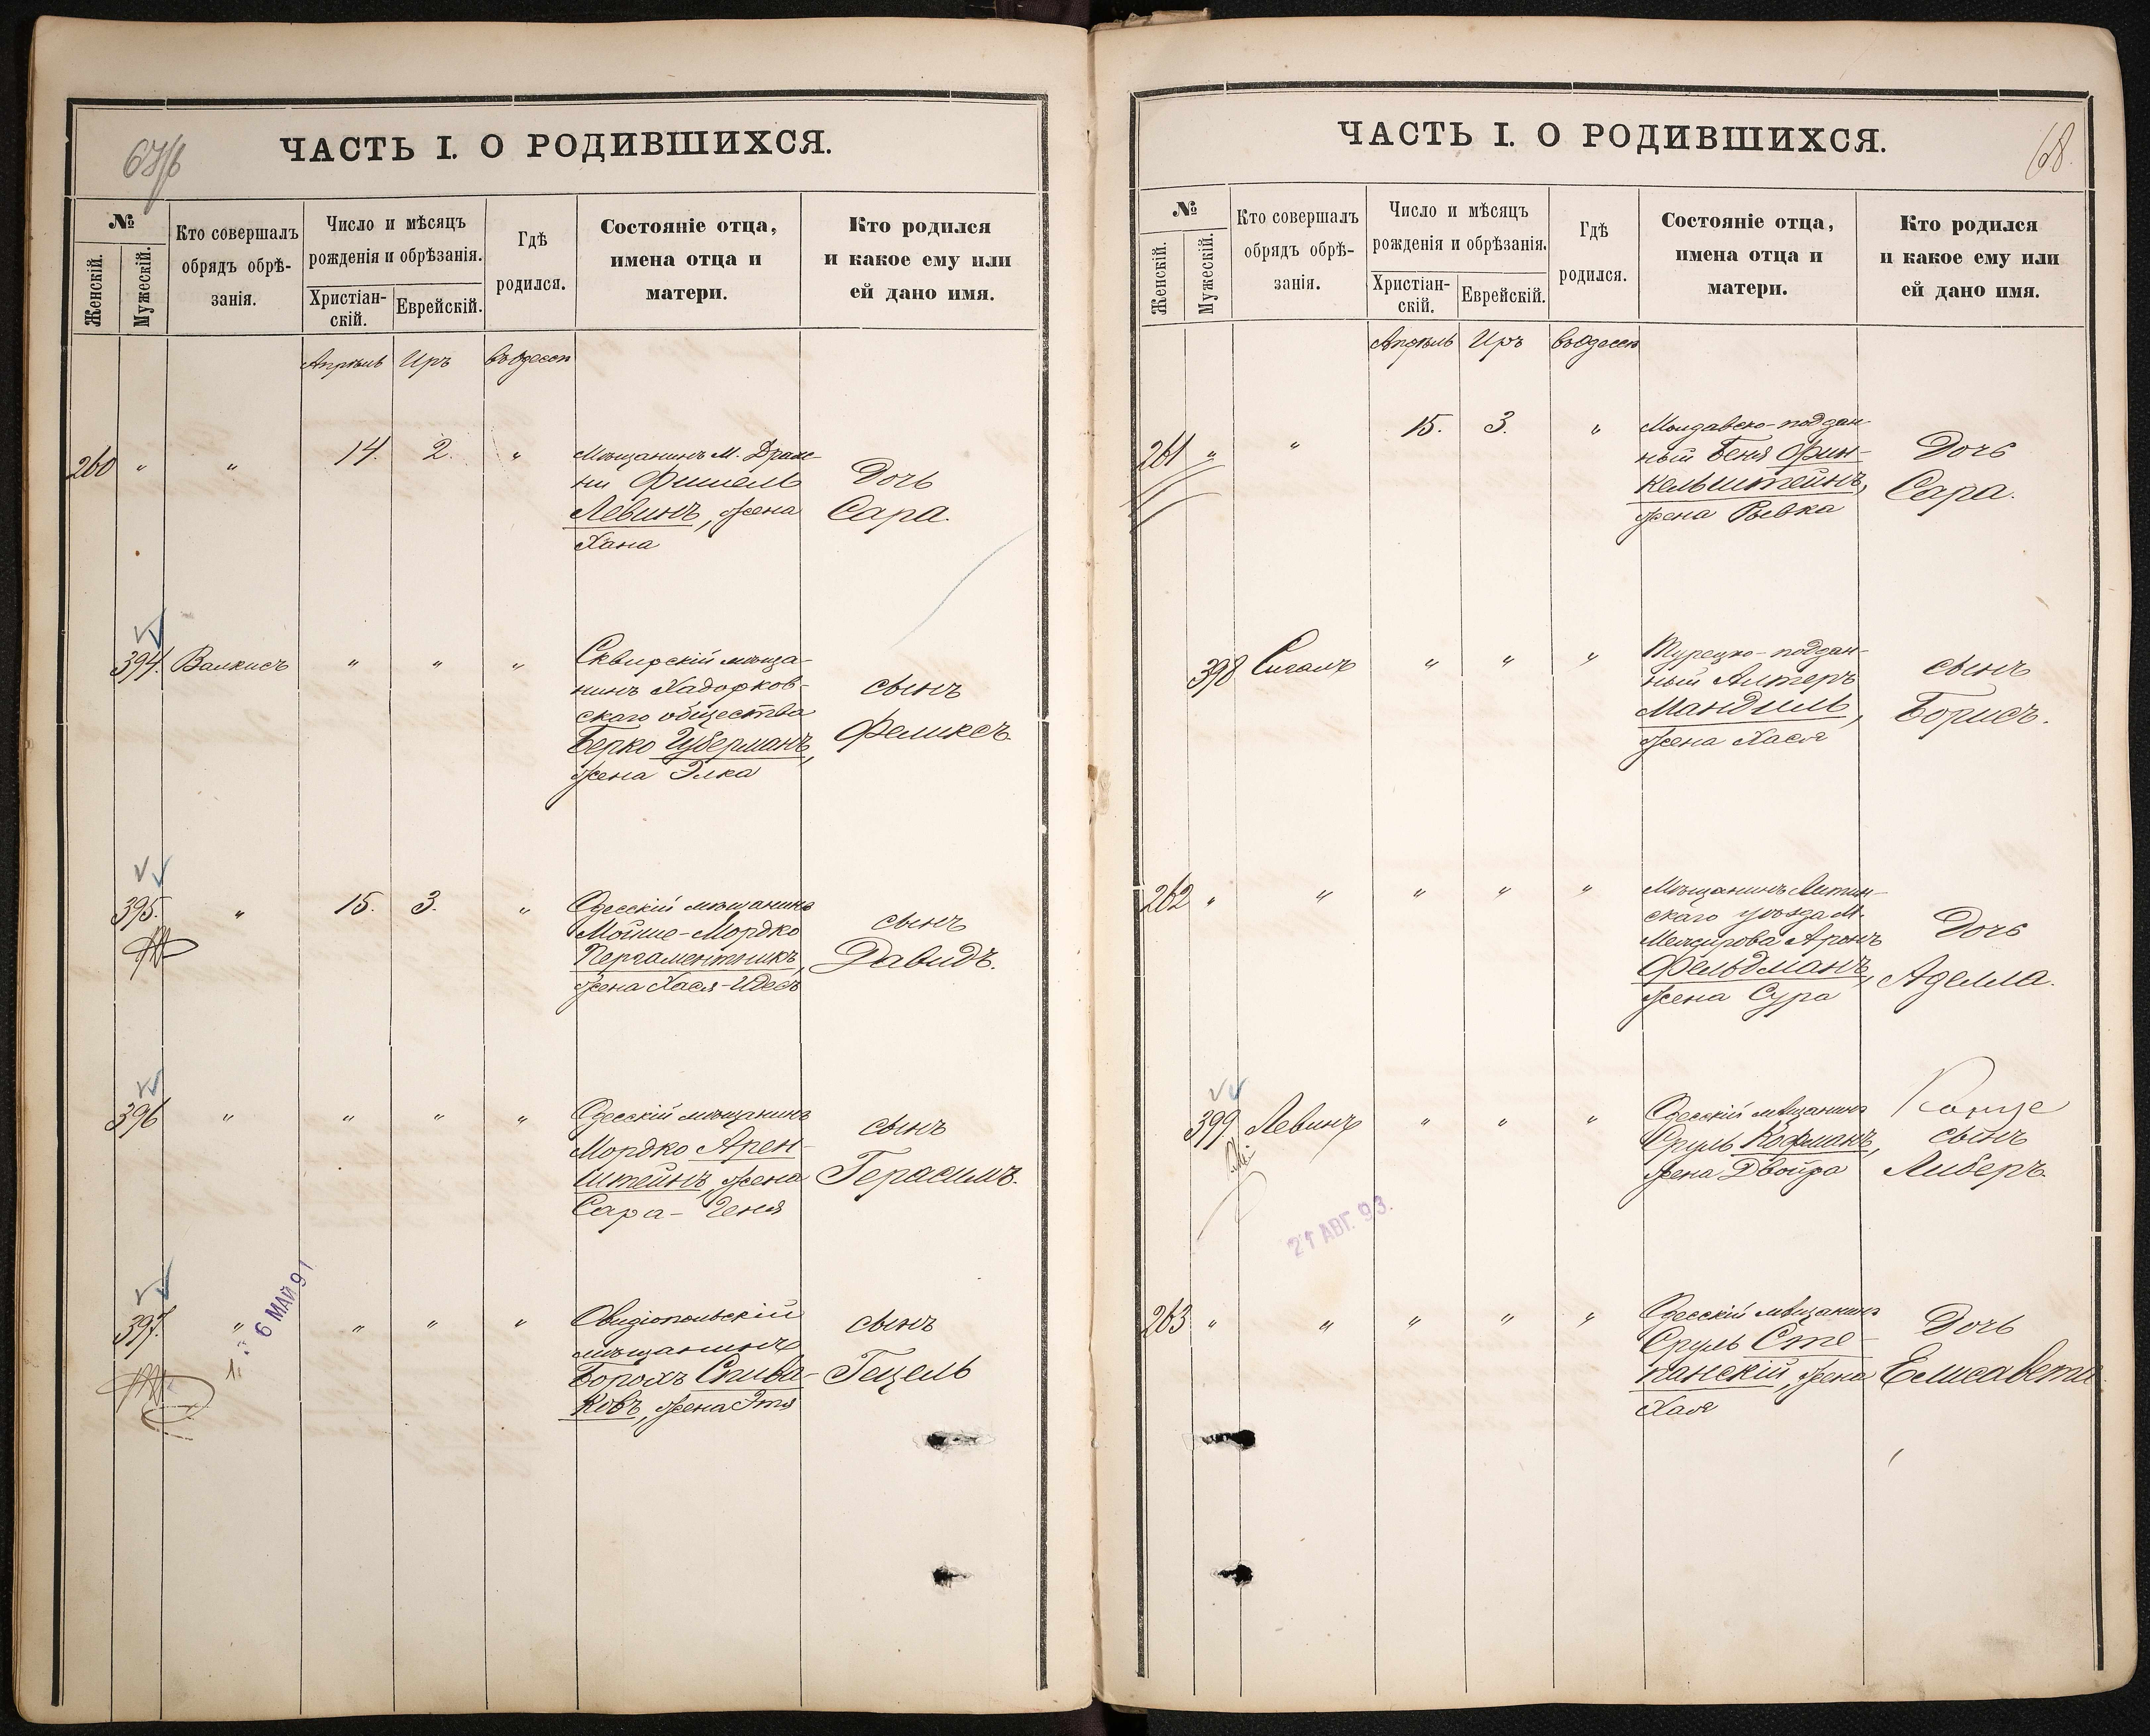 67/6
ЧАСТЬ I. О РОДИВШИХСЯ.
№
Женскій.
Мужескій.
Кто совершалъ
обрядъ обрѣ-
занія.
Число и мѣсяцъ
рожденія и обрѣзанія.
Христіан-
скій.
Еврейскій.
Гдѣ
родился.
Состояніе отца,
имена отца и
матери.
Кто родился
и какое ему или
ей дано имя.
Апрѣль Иръ въ Одессѣ
260 " " 14. 2. "
Мѣщанинъ М. Драж-
ни Фишель
Левинъ, жена
Хана
Дочь
Сара.
394. Валкисъ " " "
Сквирскій мѣща-
нинъ Ходорков-
скаго общества
Берко Губерманъ,
жена Элка
сынъ
Феликсъ.
395. " 15. 3. "
Одесскій мѣщанинъ
Мойше-Мордко
Пергаментникъ,
жена Хася-Идесъ
сынъ
Давидъ.
396 " " " "
Одесскій мѣщанинъ
Мордко Арен-
штейнъ, жена
Сара-Геня
сынъ
Герасимъ.
397. " " " "
6 МАЙ 91
Овидіопольскій
мѣщанинъ
Борохъ Спива-
ковъ, жена Этя
сынъ
Гецель
68.
ЧАСТЬ I. О РОДИВШИХСЯ.
№
Женскій.
Мужескій.
Кто совершалъ
обрядъ обрѣ-
занія.
Число и мѣсяцъ
рожденія и обрѣзанія.
Христіан-
скій.
Еврейскій.
Гдѣ
родился.
Состояніе отца,
имена отца и
матери.
Кто родился
и какое ему или
ей дано имя.
Апрѣль Иръ въ Одессѣ
261 " " 15. 3. "
Молдавско-поддан
ный Беня Фин-
кельштейнъ,
жена Рывка
Дочь
Сара.
398 Сигалъ " " "
Турецко-поддан-
ный Алтеръ
Мандиль,
жена Хася
сынъ
Борисъ.
262 " " " " "
Мѣщанинъ Летин-
скаго уѣзда М.
Межирова Аронъ
Фельдманъ,
жена Сура
Дочь
Аделла.
399 Левинъ " " "
27 АВГ. 93.
Одесскій мѣщанинъ
Сруль Кофманъ,
жена Двойра
сынъ
Либеръ.
263 " " " " "
Одесскій мѣщанинъ
Сруль Сте-
панскій, жена
Хая
Дочь
Елисавета.